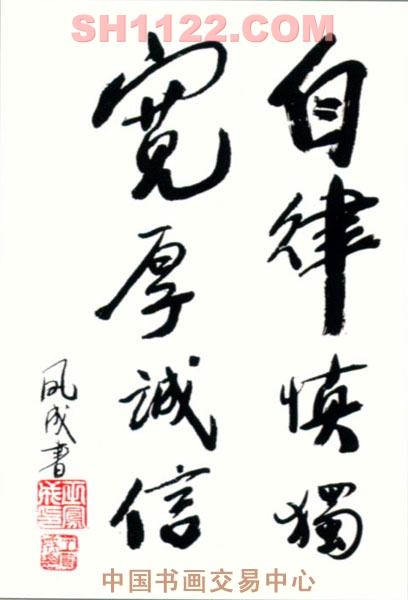 SH1122.COM
自律慎獨
寬厚誠信
凤成書
中国书画交易中心